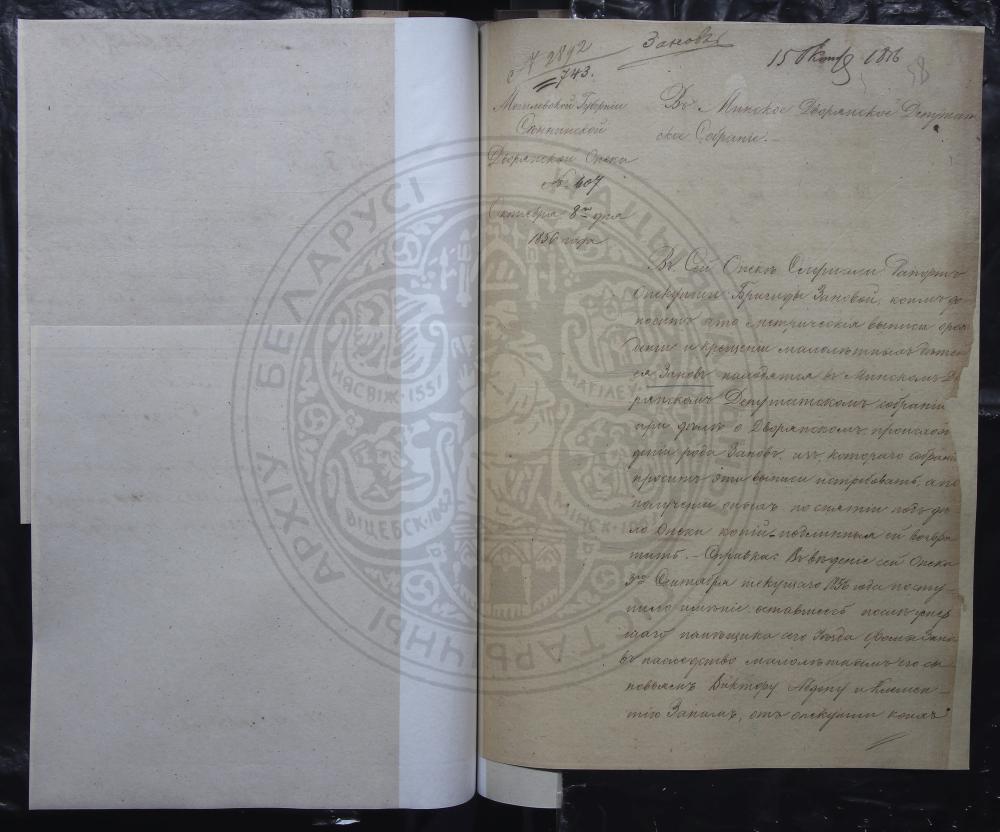 № 2892
743.
Зановъ
15 Октяб 1856
58
Могилевской Губерніи
Сѣннинской
Дворянской Опеки
№ 407
Октября 8го дня
1856 года
Въ Минское Дворянское Депутат
ское Собраніе. –
Въ Сей Опекѣ Слушали Рапортъ
Опекунши Бригиды Зановой, коимъ до
носитъ что метрическія выписи о рож
деніи и крещеніи малолѣтныхъ дѣтей
ея Зановъ находятся въ Минскомъ Дво
рянскомъ Депутатскомъ собраніи
при дѣлѣ о Дворянскомъ происхож
деніи рода Зановъ, изъ котораго собранія
проситъ эти выписи истребовать, а по
полученіи оныхъ по снятіи подъ дѣ
ло Опеки копій подлинныя ей возвра
тить. – Справка: Въ вѣденіе сей Опеки
3го Сентября текущаго 1856 года посту
пило имѣніе оставшееся послѣ умер
шаго помѣщика сего Уѣзда Фомы Зана
въ наслѣдство малолѣтнымъ его сы
новьямъ Виктору Абдону и Клемен
тію Занамъ, отъ опекунши коихъ
АРХІЎ БЕЛАРУСІ
ГІСТАРЫЧНЫ
НЯСВІЖ·1551
МАГІЛЕЎ
ВІЦЕБСК·1862
МІНСК